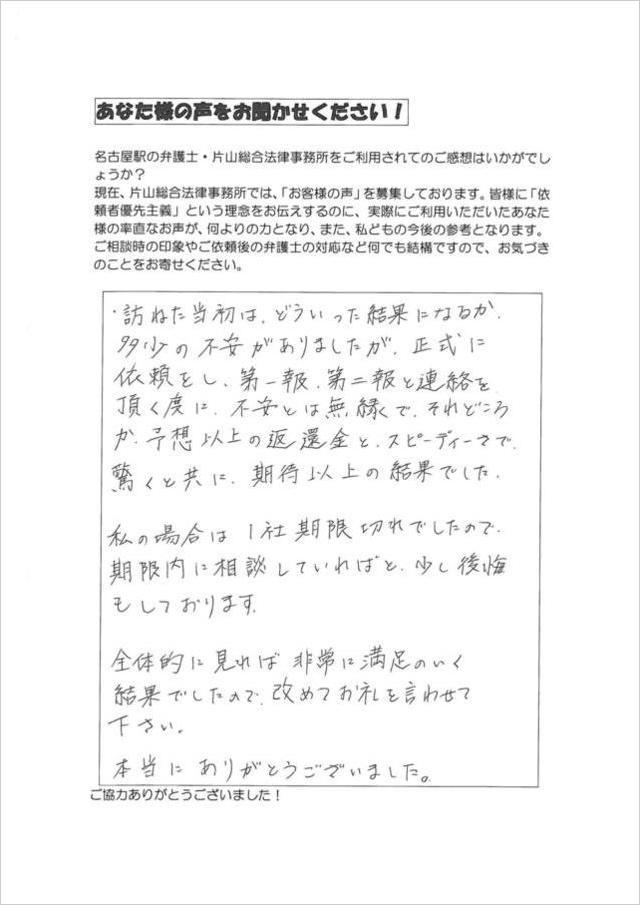 あなた様の声をお聞かせください！
名古屋駅の弁護士・片山総合法律事務所をご利用されてのご感想はいかがでし
ょうか？
現在、片山総合法律事務所では、「お客様の声」を募集しております。皆様に「依
頼者優先主義」という理念をお伝えするのに、実際にご利用いただいたあなた
様の率直なお声が、何よりの力となり、また、私どもの今後の参考となります。
ご相談時の印象やご依頼後の弁護士の対応など何でも結構ですので、お気づき
のことをお寄せください。
・訪ねた当初は、どういった結果になるか、
多少の不安がありましたが、正式に
依頼をし、第一報、第二報と連絡を
頂く度に、不安とは無縁で、それどころ
か、予想以上の返還金と、スピーディーさで、
驚くと共に、期待以上の結果でした。
私の場合は1社期限切れでしたので、
期限内に相談していればと、少し後悔
もしております。
全体的に見れば非常に満足のいく
結果でしたので、改めてお礼を言わせて
下さい。
本当にありがとうございました。
ご協力ありがとうございました！